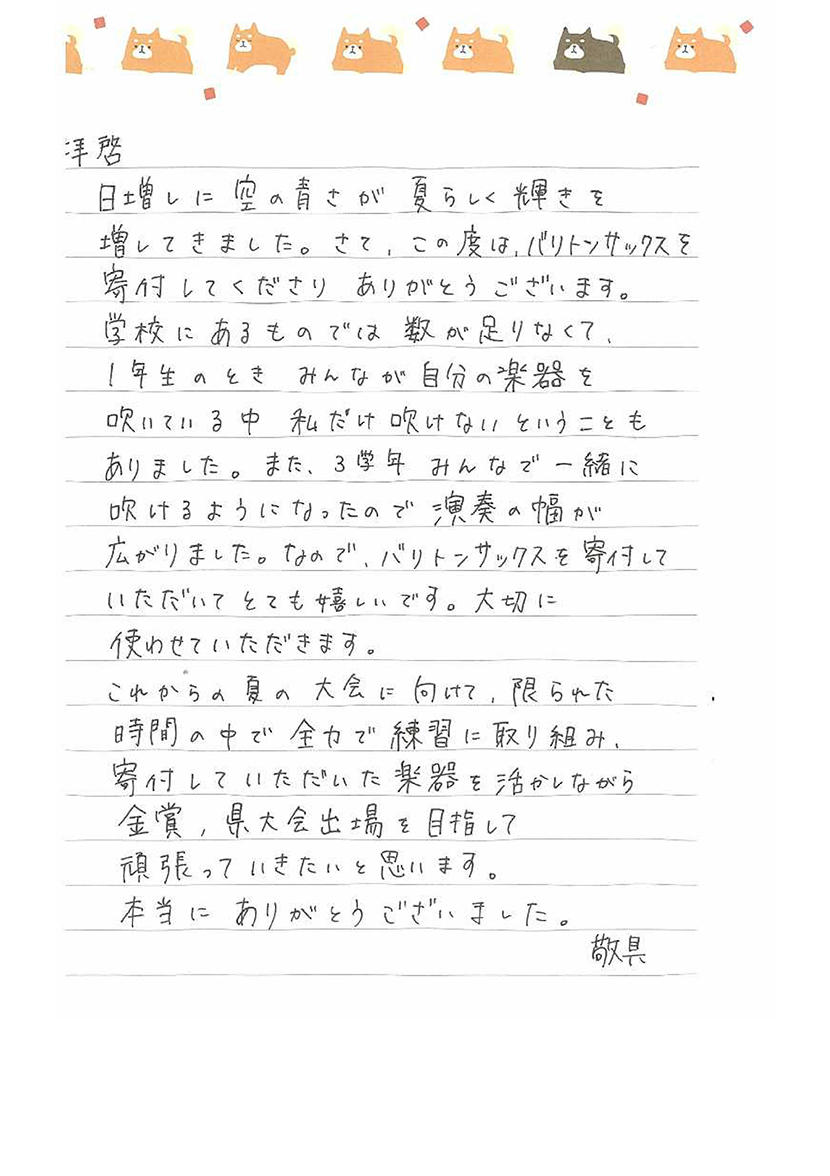 拝啓
日増しに空の青さが夏らしく輝きを
増してきました。さて、この度は、バリトンサックスを
寄付してくださりありがとうございます。
学校にあるものでは数が足りなくて、
1年生のときみんなが自分の楽器を
吹いている中私だけ吹けないということも
ありました。また、3学年みんなで一緒に
吹けるようになったので演奏の幅が
広がりました。なので、バリトンサックスを寄付して
いただいてとても嬉しいです。大切に
使わせていただきます。
これからの夏の大会に向けて、限られた
時間の中で全力で練習に取り組み、
寄付していただいた楽器を活かしながら
金賞、県大会出場を目指して
頑張っていきたいと思います。
本当にありがとうございました。
敬具